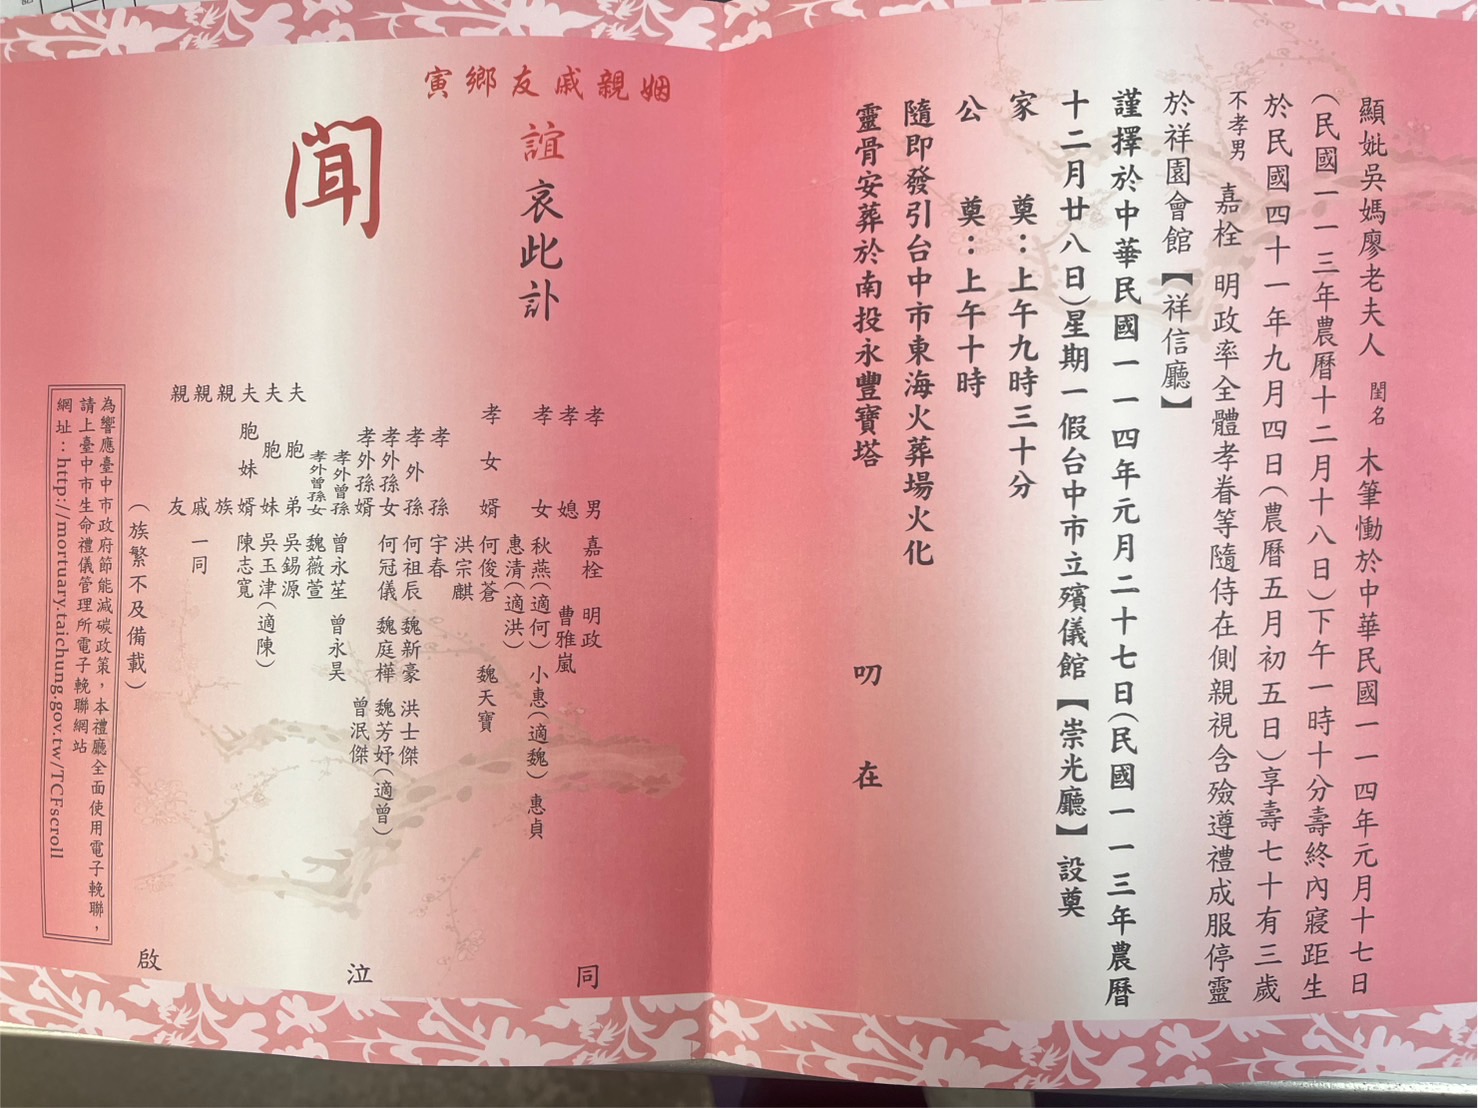 顯妣吳媽廖老夫人 閨名 木筆慟於中華民國一一四年元月十七日
(民國一一三年農曆十二月十八日)下午一時十分壽終內寢距生
於民國四十一年九月四日(農曆五月初五日)享壽七十有三歲
不孝男 嘉栓 明政率全體孝眷等隨侍在側親視含殮遵禮成服停靈
於祥園會館【祥信廳】
謹擇於中華民國一一四年元月二十七日(民國一一三年農曆
十二月廿八日)星期一假台中市立殯儀館【崇光廳】設奠
家 奠:上午九時三十分
公 奠:上午十時
隨即發引台中市東海火葬場火化
靈骨安葬於南投永豐寶塔 叨 在
姻親戚友鄉寅
誼 哀此訃
聞
孝 男 嘉栓 明政
孝 媳 曹雅嵐
孝 女 秋燕(適何) 小惠(適魏) 惠貞
惠清(適洪)
孝 女 婿 何俊蒼 魏天寶
洪宗麒
孝 孫 宇春
孝 外 孫 何祖辰 魏新豪 洪士傑
孝外孫女 何冠儀 魏庭樺 魏芳妤(適曾)
孝外孫婿 曾泯傑
孝外曾孫 曾永笙 曾永昊
孝外曾孫女 魏薇萱
夫 胞 弟 吳錫源
夫 胞 妹 吳玉津(適陳)
夫 胞 妹 婿 陳志寬
親 族
親 戚 一同
親 友
(族繁不及備載)
同 泣 啟
為響應臺中市政府節能減碳政策,本禮廳全面使用電子輓聯,
請上臺中市生命禮儀管理所電子輓聯網站
網址:http://mortuary.taichung.gov.tw/TCFscroll